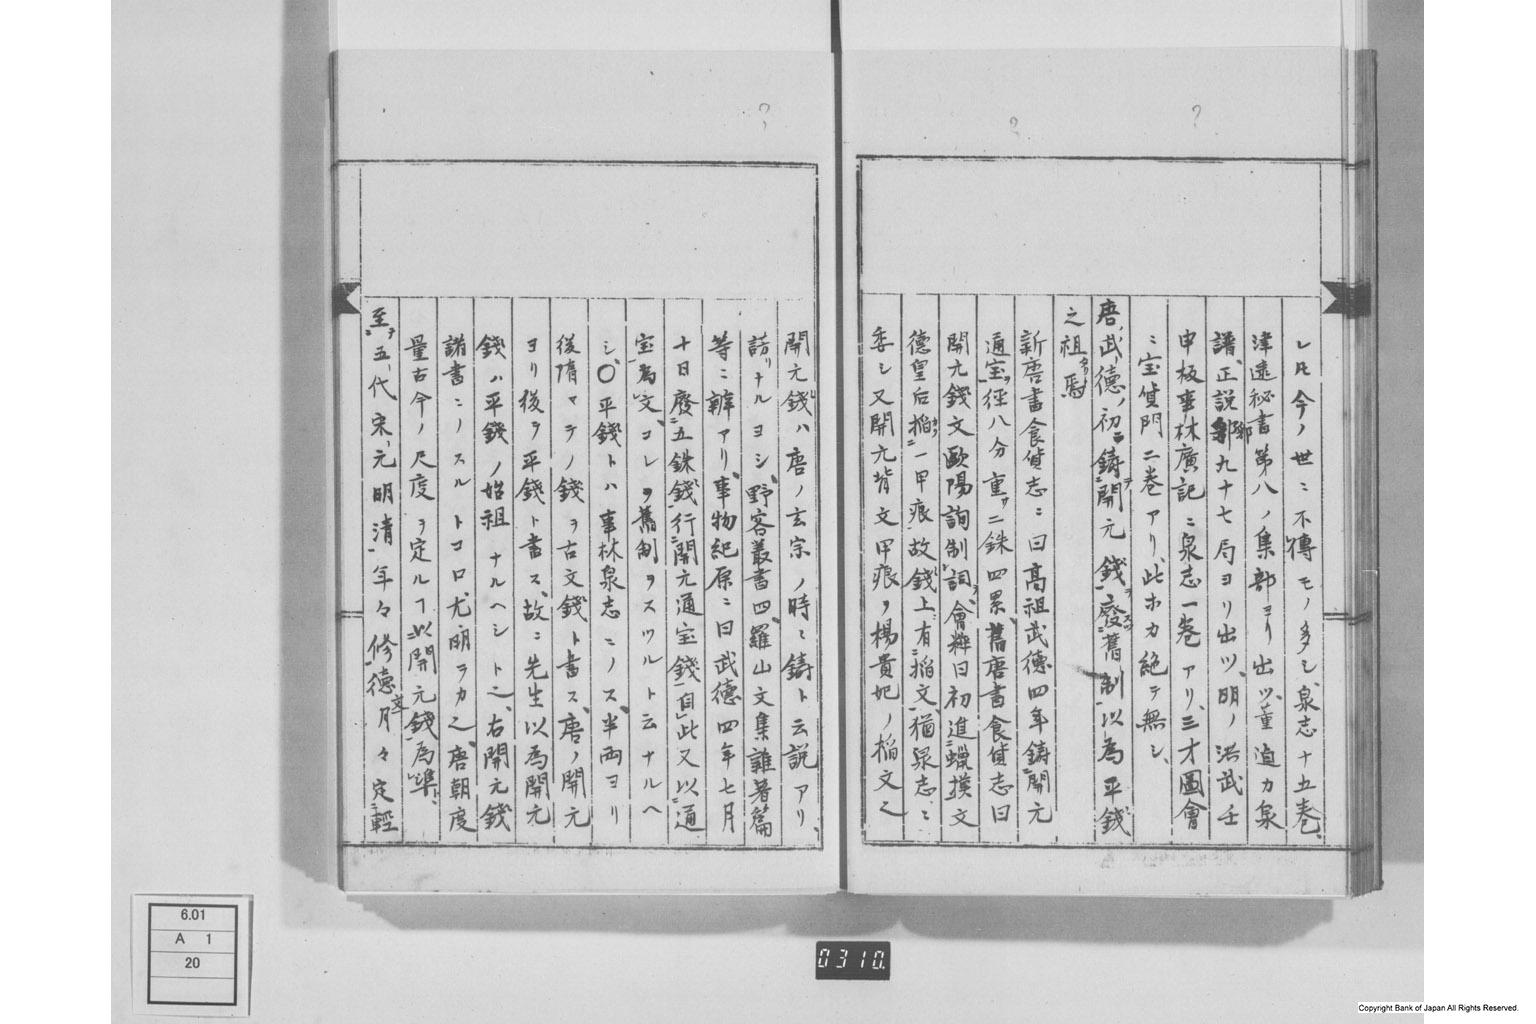 レ𪜈今ノ世ニ不傳モノ多シ、泉志十五巻、
津逮祕書第八ノ集部ヨリ出ツ、董逌カ泉
譜、正説郛九十七局ヨリ出ツ、明ノ洪武壬
申板事林廣記ニ泉志一巻アリ、三才圖會
ニ宝貨門二巻アリ、此ホカ絶テ無シ、
唐、武德ノ初鋳開元錢、廢舊制、以為平錢
之祖焉
新唐書食貨志ニ曰高祖武德四年鋳開元
通宝、徑八分重サ二銖四累、舊唐書食貨志曰
開元錢文歐陽詢制詞、會粹曰初進蠟摸文
德皇后搯一甲痕、故錢上有搯文、猶泉志ニ
委シ又開元背文甲痕ヲ楊貴妃ノ搯文之
開元錢ハ唐ノ玄宗ノ時ニ鋳ト云説アリ、
謗リナルヨシ、野客叢書四、羅山文集雜著篇
等ニ辨アリ、事物紀原ニ曰武德四年七月
十日廢五銖錢行開元通宝錢、自此又以通
宝為文、コレヲ舊制ヲスツルト云ナルヘ
シ、〇平錢トハ事林泉志ニノス、半両ヨリ
後隋マテノ錢ヲ古文錢ト書ス、唐ノ開元
ヨリ後ヲ平錢ト書ス、故ニ先生以為開元
錢ハ平錢ノ始祖ナルヘシト之、右開元錢
諸書ニノスルトコロ尤明ラカ之、唐朝度
量古今ノ尺度ヲ定ルヿ以開元錢為準、
至五代宋元明清、年々修德月々定輕
6.01
A 1
20
0310.
Copyright Bank of Japan All Rights Reserved.